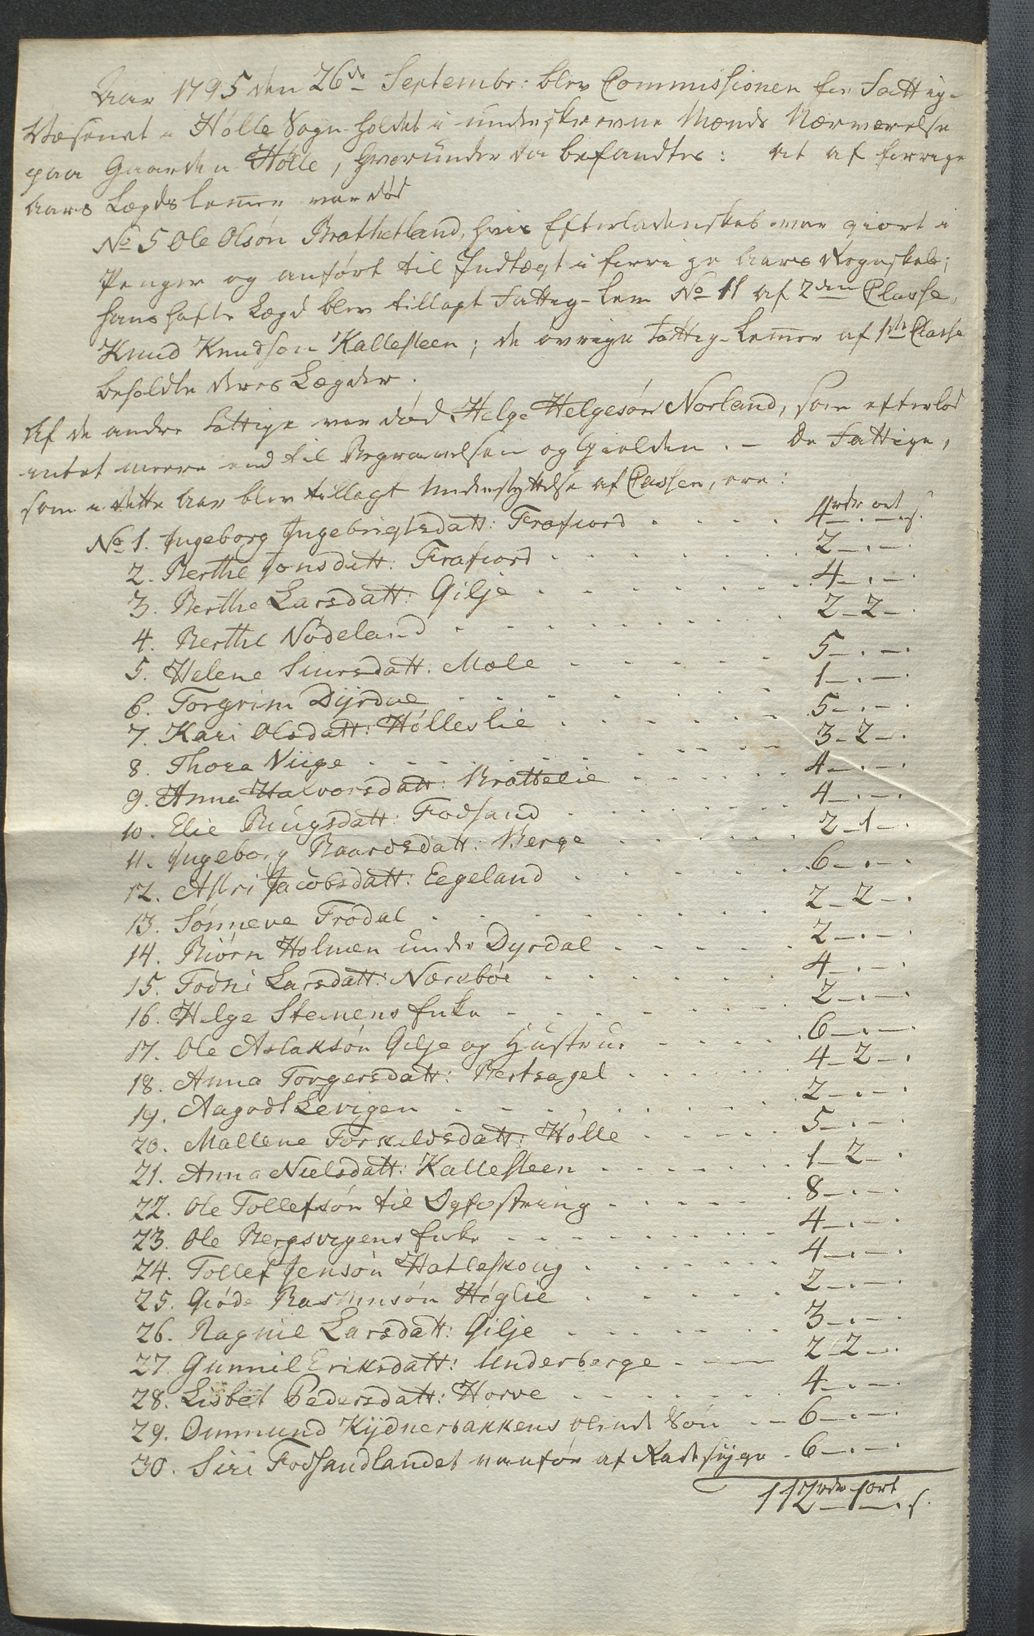 Aar 1795 den 26de Septembr: blev Commissionen for Fattig-
Væsenet i Hølle Sogn holdet i underskrevne Mænds Nærværelse
paa Gaarden Hølle, hvorunder da befandtes: at af forrige
Aars Lægdslemer var død
No 5 Ole Olsøn Brathetland, hvis Efterladenskab var giort i
Penger og anført til Indtægt i forrige Aars Regnskab;
hans hafte Lægd blev tillagt Fattig-Lem No 11 af 2den Classe,
Knud Knudsøn Kallesteen; de øvrige Fattig-Lemer af 1ste Classe
beholdte deres Lægder.
Af de andre Fattige var død Helge Helgesøn Norland, som efterlod
intet meere end til Begravelsen og Gielden. – De Fattige,
som i dette Aar blev tillagt Understyttelse af Cassen, ere:
No 1. Ingeborg Ingebrigtsdatt: Frafiord . . . . 4 rdr ort s.
2. Berthe Jonsdatt: Frafiord . . . . 2 – . – .
3. Berthe Larsdatt: Gilje . . . . 4 – . – .
4. Berthe Nødeland . . . . 2 – 2 – .
5. Helene Siursdatt: Mæle . . . . 5 – . – .
6. Torgrim Dyrdal . . . . 1 – . – .
7. Kari Olsdatt: Hølleslie . . . . 5 – . – .
8. Thora Viige . . . . 3 – 2 – .
9. Anna Halvorsdatt: Brattelie . . . . 4 – . – .
10. Elie Bringsdatt: Fossand . . . . 4 – . – .
11. Ingeborg Baardsdatt: Berge . . . . 2 – 1 – .
12. Astri Jacobsdatt: Eegeland . . . . 6 – . – .
13. Sønneve Frødal . . . . 2 – 2 – .
14. Biørn Holmen under Dyrdal . . . . 2 – . – .
15. Todne Larsdatt: Nærebøe . . . . 4 – . – .
16. Helge Stenens Enke . . . . 2 – . – .
17. Ole Aslaksøn Gilje og Hustrue . . . . 6 – . – .
18. Anna Torgersdatt: Bertsagel . . . . 4 – 2 – .
19. Aagodt Levigen . . . . 2 – . – .
20. Mallene Torkildsdatt: Hølle . . . . 5 – . – .
21. Anna Nielsdatt: Kallesteen . . . . 1 – 2 – .
22. Ole Tollefsøn til Opfostring . . . . 8 – . – .
23. Ole Bergsvigens Enke . . . . 4 – . – .
24. Tollef Jensøn Hatleskoug . . . . 4 – . – .
25. Giøde Rasmusøn Høglie . . . . 2 – . – .
26. Ragnil Larsdatt: Gilje . . . . 3 – . – .
27. Gunnil Eriksdatt: Underberge . . . . 2 – 2 – .
28. Lisbet Pedersdatt: Horve . . . . 4 – . – .
29. Ommund Kydnerbakkens blinde Søn . . 6 – . – .
30. Siri Fossandlandet vanfør af Radesyge . 6 – . – .
112 rdr 1 ort s.